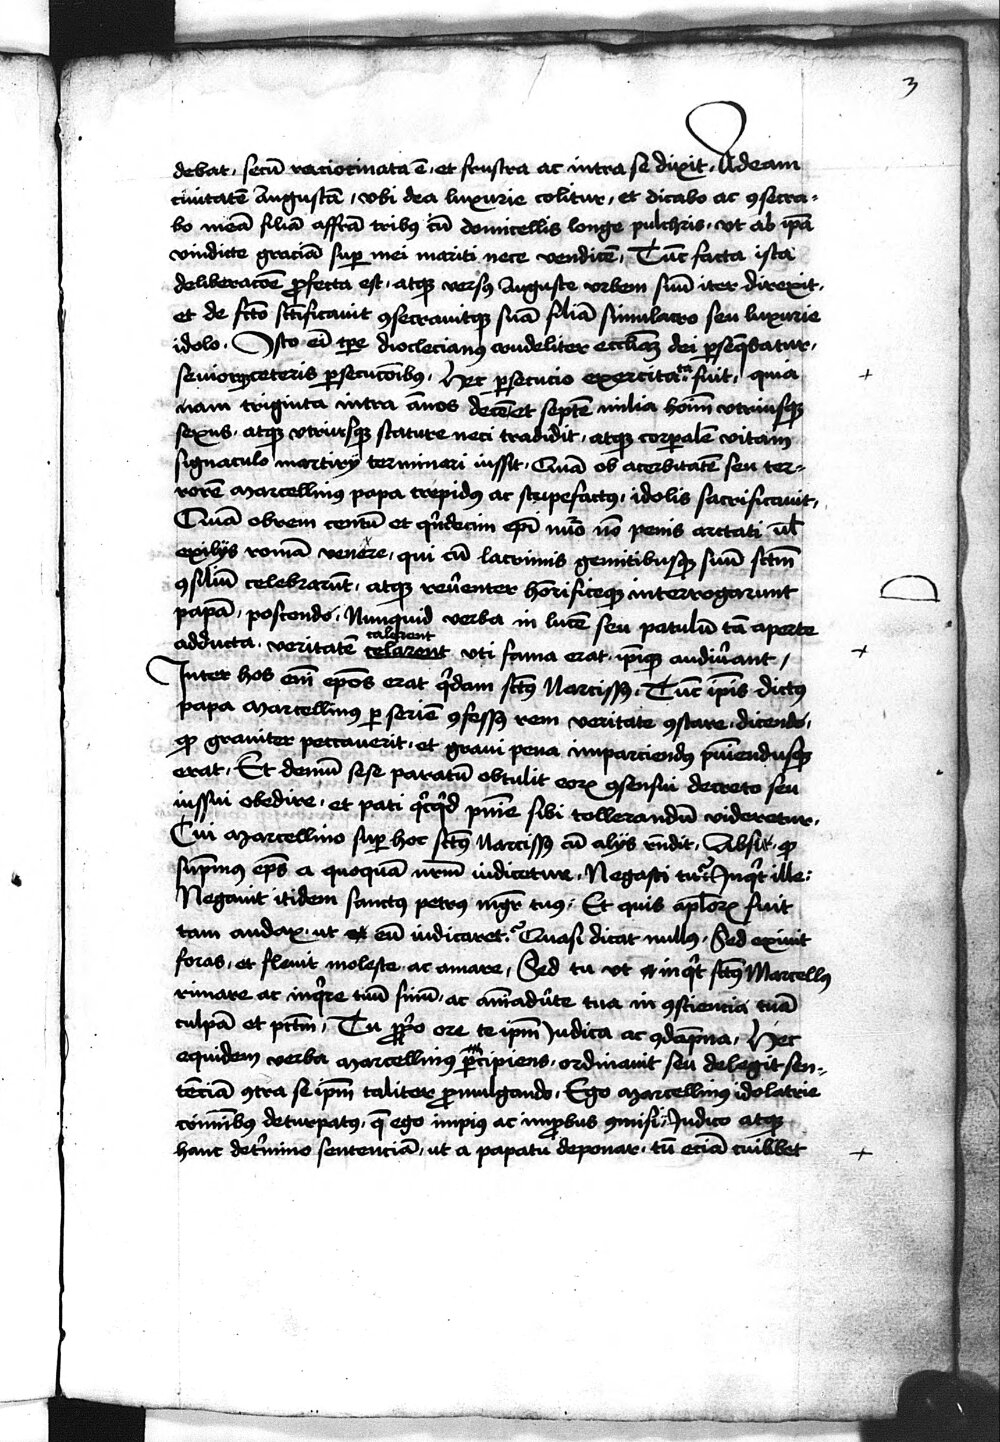 3
debat, secū raciocinata ē, et frustra ac intra se dixit, Adeam
ciuitatē Augustā, vbi dea luxurie colitur, et dicabo ac ꝯsecra-
bo meā filiā affrā tribꝰ cū domicellis longe pulchris, vt ab ip̄a
vindicte graciā suꝑ mei mariti nece vendicē, Tūc facta ista
deliberacōe ꝓfecta est, atqꝫ versꝰ Auguste vrbem suū iter direxit,
et de fc̄to sc̄tificauit ꝯsecrauitqꝫ suā filiā simulacro seu luxurie
idolo, Isto em̄ tp̄e dioclecianꝰ crudeliter eccliaꝫ dei ꝑseqͤbatur,
seuiorqꝫ ceteris ꝑsecucōibꝰ, Hec ꝑsecucio exercita fuit, quia
nam triginta intra ānos decē et septē milia hoīm vtriusqꝫ
sexus, atqꝫ vtriusqꝫ stature neci tradidit, atqꝫ corꝑalē vitam
signaculo martirij terminari iussit, Quā ob acerbitatē seu ter-
rorē Marcellinꝰ papa trepidꝰ ac stupefactꝰ, idolis sacrificauit,
Quā obrem centū et qͥndecim ep̄i nūo nō penis arctati ul̄
exilijs romā venere, qui cū lacrimis gemitibusqꝫ suū sc̄tm
ꝯsiliū celebrarūt, atqꝫ reuēenter honorificeqꝫ interrogarunt
papā, poscendo, Nunquid verba in lucē seu patulū tā aperte
calarent
adducta, veritatē celarent vti fama erat, ip̄iqꝫ audiūant,
Inter hos em̄ ep̄os erat qͥdam sc̄tꝰ Narcissꝰ, Tūc ip̄is dictꝰ
papa Marcellinꝰ ꝑ seriē ꝯfessꝰ rem veritate ꝯstare, dicendo,
qꝫ grauiter peccauerit, et graui pena imparciendꝰ pūiendusqꝫ
erat, Et demū sese paratū obtulit eoꝝ ꝯsensui decreto seu
iussui obedire, et pati qͥcqͥd pn̄ie sibi tollerandū videretur,
Cui Marcellino suꝑ hoc sc̄tꝰ Narcissꝰ cū alijs rn̄dit, Absit, qꝫ
sup̄mus ep̄s a quoquā vrm̄ iudicetur, Negasti tu? Inqͥt ille:
Negauit itidem sanctꝰ petrꝰ mgr̄ tuus, Et quis apl̄oꝝ fuit
tam audax, ut eū iudicaret? Quasi dicat nullꝰ, Sed exiuit
foras, et fleuit moleste ac amare, Sed tu vt inqͥt sc̄tꝰ Marcellꝰ
rimare ac inqͥre tuū sinū, ac aīaduēte tua in ꝯsciencia tuā
culpā et pctm̄, Tu ꝓprio ore te ip̄m Judica ac ꝯdāpna, Hec
equidem verba Marcellinꝰ ꝑcipiens, ordinauit seu delegit sen-
tēciā ꝯtra se ip̄m taliter ꝓmulgando, Ego Marcellinꝰ idolatrie
crīminibꝰ deturpatꝰ, qͣ ego impiꝰ ac improbus ꝯmisi, Judico atqꝫ
hanc detͥmino sentenciā, ut a papatu deponar, tū eciā cuilibet